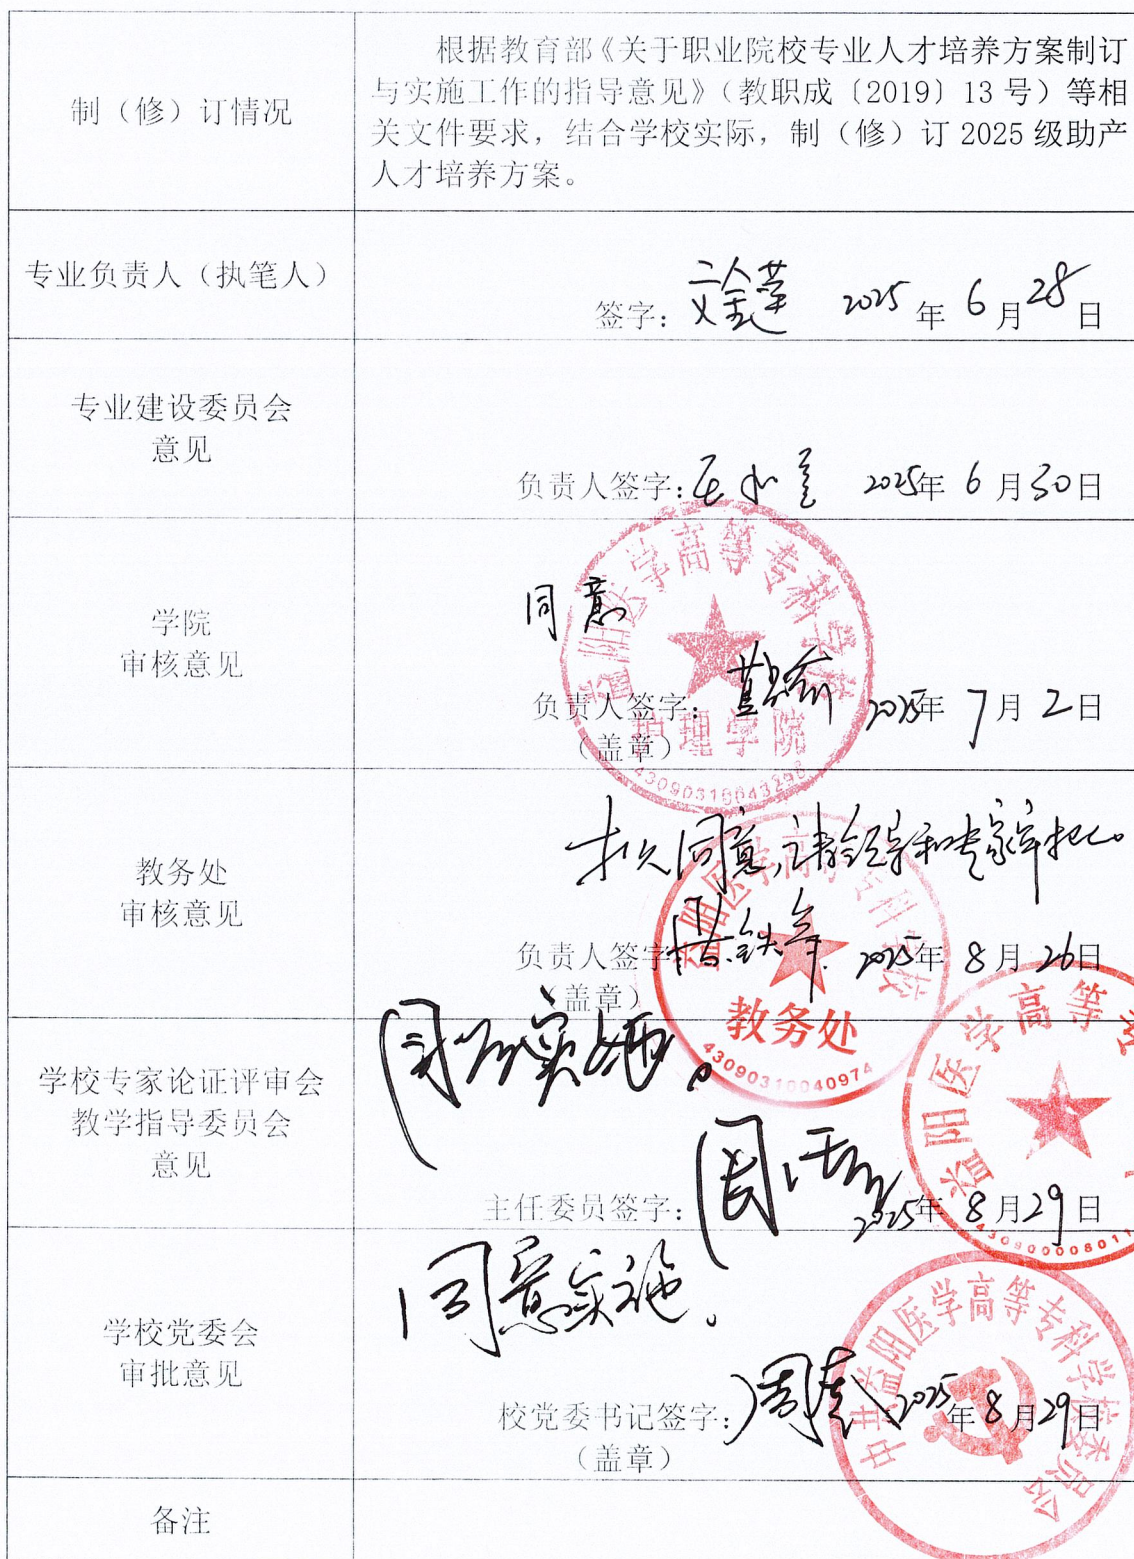 制（修）订情况
根据教育部《关于职业院校专业人才培养方案制订
与实施工作的指导意见》（教职成〔2019〕13号）等相
关文件要求，结合学校实际，制（修）订 2025 级助产
人才培养方案。
专业负责人（执笔人）
签字： 2025 年 6 月 28 日
专业建设委员会
意见
负责人签字： 2025年 6 月 30日
学院
审核意见
同意
负责人签字： 2025年 7月 2日
（盖章）
益阳医学高等专科学校
护理学院
43090310043298
教务处
审核意见
同意，请领导和专家审批。
负责人签字 2025年 8月 26日
（盖章）
益阳医学高等专科学校
教务处
43090310040974
学校专家论证评审会
教学指导委员会
意见
同意实施。
主任委员签字： 2025年 8月29日
益阳医学高等专
430900008011
学校党委会
审批意见
同意实施。
校党委书记签字： 2025年 8月29日
（盖章）
中共益阳医学高等专科学校委员会
备注